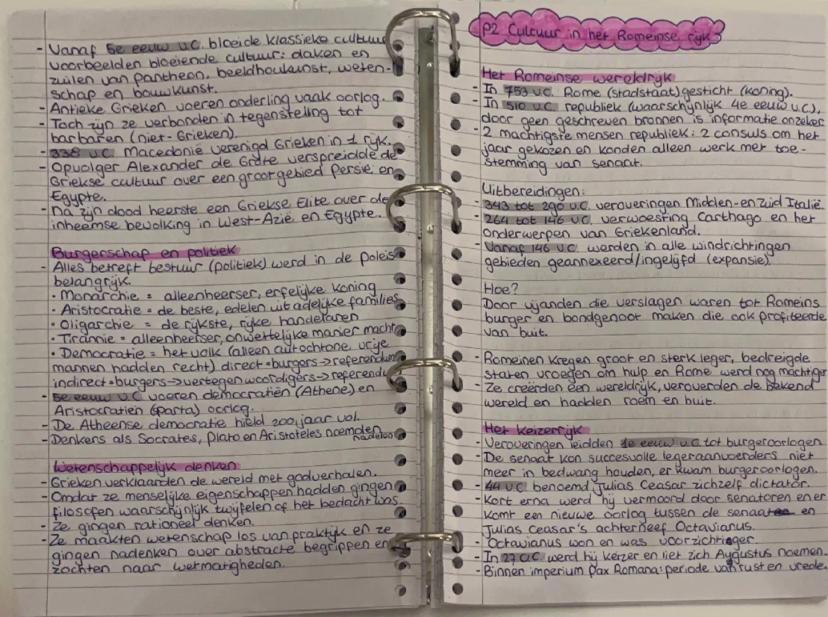 - Vanaf 5e eeuw v.C. bloeide klassieke cultuur
voorbeelden bloeiende cultuur: daken en
zuilen van pantheon, beeldhoukunst, weten-
schap en bouwkunst.
- Antieke Grieken voeren onderling vaak oorlog.
- Toch zijn ze verbonden in tegenstelling tot
barbaren (niet-Grieken).
- 338 v.C Macedonië verenigd Grieken in 1 rijk.
- Opvolger Alexander de Grote verspreidde de
Griekse cultuur over een groot gebied Persië en
Egypte.
- na zijn dood heerste een Griekse Elite over de
inheemse bevolking in West-Azië en Egypte.
Burgerschap en politiek
- Alles betreft bestuur (politiek) werd in de poleis
belangrijk.
• Monarchie = alleenheerser, erfelijke koning
• Aristocratie = de beste, edelen uit adelijke families
• Oligarchie = de rijkste, rijke handelaren
• Tirannie = alleenheerser, onwettelijke manier macht
• Democratie = het volk (alleen autochtone vrije
mannen hadden recht) direct=burgers→referendum
indirect=burgers→vertegenwoordigers→referendu
- 5e eeuw v.C voeren democratiën (Athene) en
Aristocratiën (Sparta) oorlog.
- De Atheense democratie hield 200 jaar vol.
- Denkers als Socrates, plato en Aristoteles noemden
nadelen
Wetenschappelijk denken
- Grieken verklaarden de wereld met godverhalen.
- Omdat ze menselijke eigenschappen hadden gingen
filosofen waarschijnlijk twijfelen of het bedacht was.
- Ze gingen rationeel denken.
- Ze maakten wetenschap los van praktijk en ze
gingen nadenken over abstracte begrippen en
zochten naar wetmatigheden.
P2 Cultuur in het Romeinse rijk
Het Romeinse wereldrijk
- In 753 v.C. Rome (stadstaat) gesticht (koning).
- In 510 v.C. republiek (waarschijnlijk 4e eeuw v.C),
door geen geschreven bronnen is informatie onzeker
- 2 machtigste mensen republiek: 2 consuls om het
jaar gekozen en konden alleen werk met toe-
stemming van senaat.
Uitbereidingen:
- 343 tot 290 v.C. veroveringen Midden- en Zuid Italië.
- 264 tot 146 v.C. verwoesting Carthago en het
onderwerpen van Griekenland.
- Vanaf 146 v.C. werden in alle windrichtingen
gebieden geannexeerd/ingelijfd (expansie)
Hoe?
Door vijanden die verslagen waren tot Romeins
burger en bondgenoot maken die ook profiteerde
van buit.
- Romeinen kregen groot en sterk leger, bedreigde
staten vroegen om hulp en Rome werd nog machtiger
- Ze creërden een wereldrijk, veroverden de bekend
wereld en hadden roem en buit.
Het keizerrijk
- Veroveringen leidden 1e eeuw v.C tot burgeroorlogen
- De senaat kon succesvolle legeraanvoerders niet
meer in bedwang houden, er kwam burgeroorlogen.
- 44 v.C benoemd Julias Ceasar zichzelf dictator.
- Kort erna werd hij vermoord door senatoren en er
komt een nieuwe oorlog tussen de senaat en
Julias Ceasar's achterneef Octavianus.
- Octavianus won en was voorzichtiger.
- In 27 v.C werd hij keizer en liet zich Augustus noemen.
- Binnen imperium Pax Romana: periode van rust en vrede.